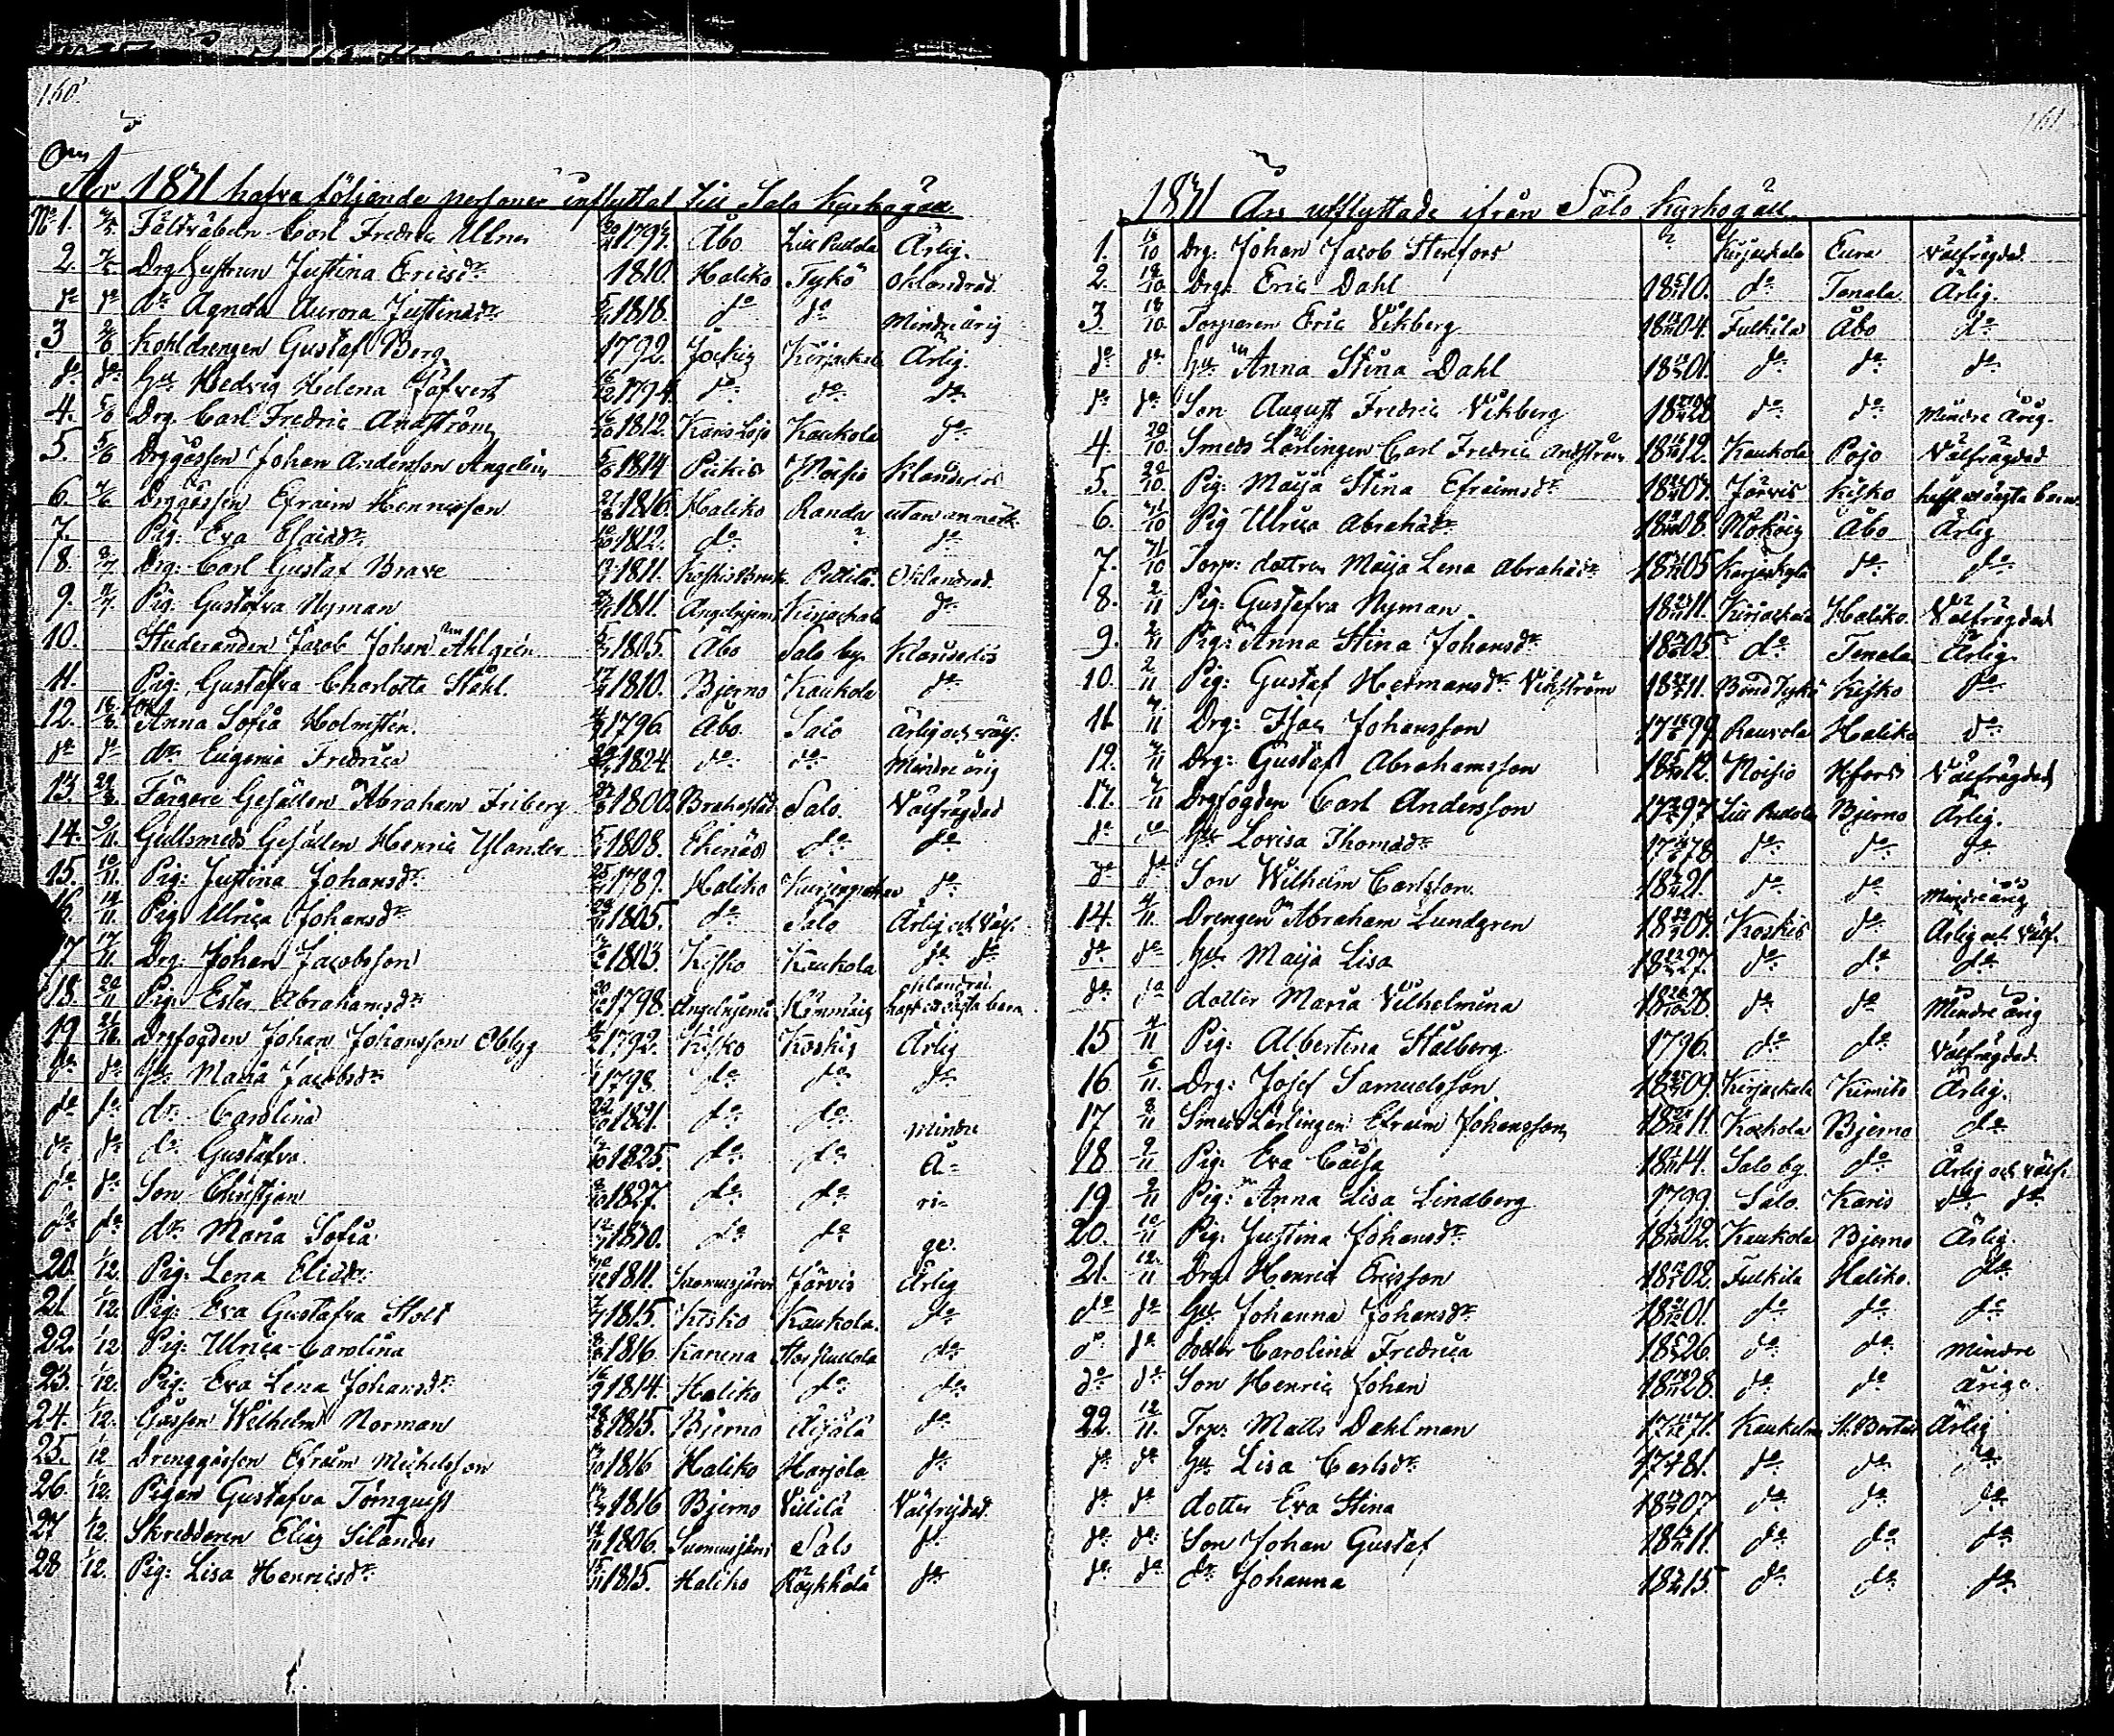 160.
Om
År 1831 hafva följande personer inflyttat till Salo Kyrkogäll.
No 1. Fältväbeln Carl Fredric Ulner 1797. Åbo Lill Pudola Ärlig.
2. Drg hustrun Justina Ericsdr 1810. Haliko Tykö oklandrad
do do dr Agneta Aurora Justinadr 1818. do do Mindre årig
3 Kohldrengen Gustaf Berg 1792. Jockis Kirjackala Ärlig.
do do Hu Hedvig Helena Jäfvert 1794. do do do
4. Drg. Carl Fredric Andström 1812. Karis Lojo Kaukola do
5. 5/6 Drggossen Johan Andersson Angelin 1814 Piikis Moisio Klanderlös
6. Drggossen Efraim Henricsson 1816. Haliko Randa utan anmärk
7. Pig: Eva Esaiasdr 1812. do ? do
8. Drg: Carl Gustaf Brave 1811. Koskis Bruk Pettilä. Oklandrad.
9. Pig: Gustafva Nyman 1811. Angelnjemi Kirjackala do
10. Studeranden Jacob Johan Ahlgrén 1805. Åbo Salo by.
11. Pig: Gustafva Charlotta Ståhl. 1810. Bjerno Kaukola do
12. Anna Sofia Holmstén. 1796 Åbo. Salo ärlig och välf.
do do dr Eugenia Fredrica 1824 do do Mindre årig
13. Färgare Gesällen Abraham Friberg 1800. Brahestad Salo. Välfrägdad
14. Gullsmeds Gesällen Henric Ylander 1808. Ekenäs do do
15. 10/11. Pig: Justina Johansdr 1789. Haliko do
16. 14/11. Pig: Ulrica Johansdr 1805. do Salo Ärlig och Välf.
17 17/11. Drg: Johan Jacobsson 1803. Kisko Kaukola do do
18. 20/11 Pig: Ester Abrahamsdr 1798. Angelnjemi oklandrad. haft oäkta barn
19 Drgfogden Johan Johansson 1792. Kisko Koskis Ärlig
do do Hu Maria Jacobsdr 1798. do do do
do do dr Carolina 1821. do do Mindre
do do dr Gustafva. 1825. do do å=
do do Son Christjan 1827. do do ri=
do do dr Maria Sofia 1830. do do ge.
20. 1/12. Pig: Lena Eliædr. 1811. Suomusjärvi Järvis Ärlig
21 1/12. Pig: Eva Gustafva Stolt 1815. Kisko Kaukola. do
22. 1/12 Pig: Ulrica Carolina 1816. Karuna Stor Pudola do
23. 1/12. Pig: Eva Lena Johansdr 1814. Haliko do do
24. 1/12. Gossen Wilhelm Norman 1815. Bjerno do
25. 1/12 Drenggossen Efraim Michelsson 1816 Haliko Harjola do
26. 1/12. Pigan Gustafva Törnquist 1816 Bjerno Villilä Välfrejdad.
27 1/12. Skreddaren Elias Silander 1806. Suomusjärvi Salo do
28 1/12. Pig: Lisa Henricsdr 1815. Haliko do
161
1831 Äro utflyttade ifrån Salo Kyrkogäll.
1. Drg: Johan Jacob Stenfors ? Kirjackala Eura Välfrägdad
2. 18/10 Drg: Eric Dahl 1810. do Tenala Ärlig.
3. 18/10. Torparen Eric Vikberg 1804. Fulkila Åbo do
do do Hu Anna Stina Dahl 1801. do do do
do do Son August Fredric Vikberg 1828 do do Mindre Årig.
4. Smeds Lärlingen Carl Fredric Andström 1812. Kaukola Pojo Välfrägdad
5. Pig: Maija Stina Efraimsdr 1807. Järvis Kisko haft oäkta barn.
6. Pig Ulrica Abrahasdr 1808. Åbo Ärlig
7. Torp: dottren Maija Lena Abrahasdr 1805 do do
8. 2/11 Pig: Gustafva Nyman. 1811. Kirjackala Haliko. Välfrägdad
9. 2/11 Pig: Anna Stina Johansdr 1805 do Tenala Ärlig.
10. 2/11 Pig: Gustaf Hermansdr Vikström 1811. Kisko do
11. Drg: Isac Johansson 1799. Haliko do
12. Drg: Gustaf Abrahamsson 1812. Moisio Hfors Välfrägdad
Drgfogden Carl Andersson 1797. Lill Pudola Bjerno Ärlig.
do do Hu Lovisa Thomasdr 1778. do do do
do do Son Wilhelm Carlsson. 1821. do do Mindreårig
14. Drengen Abraham Lundgren 1807. Koskis do Ärlig och Välf.
do do Hu Maija Lisa do do do
do do dotter Maria Vilhelmina 1828. do do Mindre årig
15 Pig: Albertina Stålberg 1796. do do Välfrägdad.
16 6/11. Drg: Josef Samuelsson. 1809. Kirjackala Kimito Ärlig.
17 8/11 Smeds Lärlingen Efraim Johansson 1811. Bjerno do
18 9/11 Pig: Eva Caisa 1814. Salo by. do Ärlig och välf.
19 9/11 Pig: Anna Lisa Lindberg 1799. Salo. Karis do do
20. 10/11 Pig: Justina Johansdr 1802. Kaukola Bjerno Ärlig.
21. 12/11 Drg: Henric Ericsson 1802. Fulkila Haliko. do
do do Hu Johanna Johansdr 1801. do do do
do do dotter Carolina Fredrica 1826. do do mindre
do do Son Henric Johan 1828. do do åriga.
22. 12/11. Trp: Matts Dahlman 1771. Ärlig
do do Hu Lisa Carlsdr 1781. do do do
do do dotter Eva Stina 1807 do do do
do do Son Johan Gustaf 1811. do do do
do do dr Johanna 1815 do do do